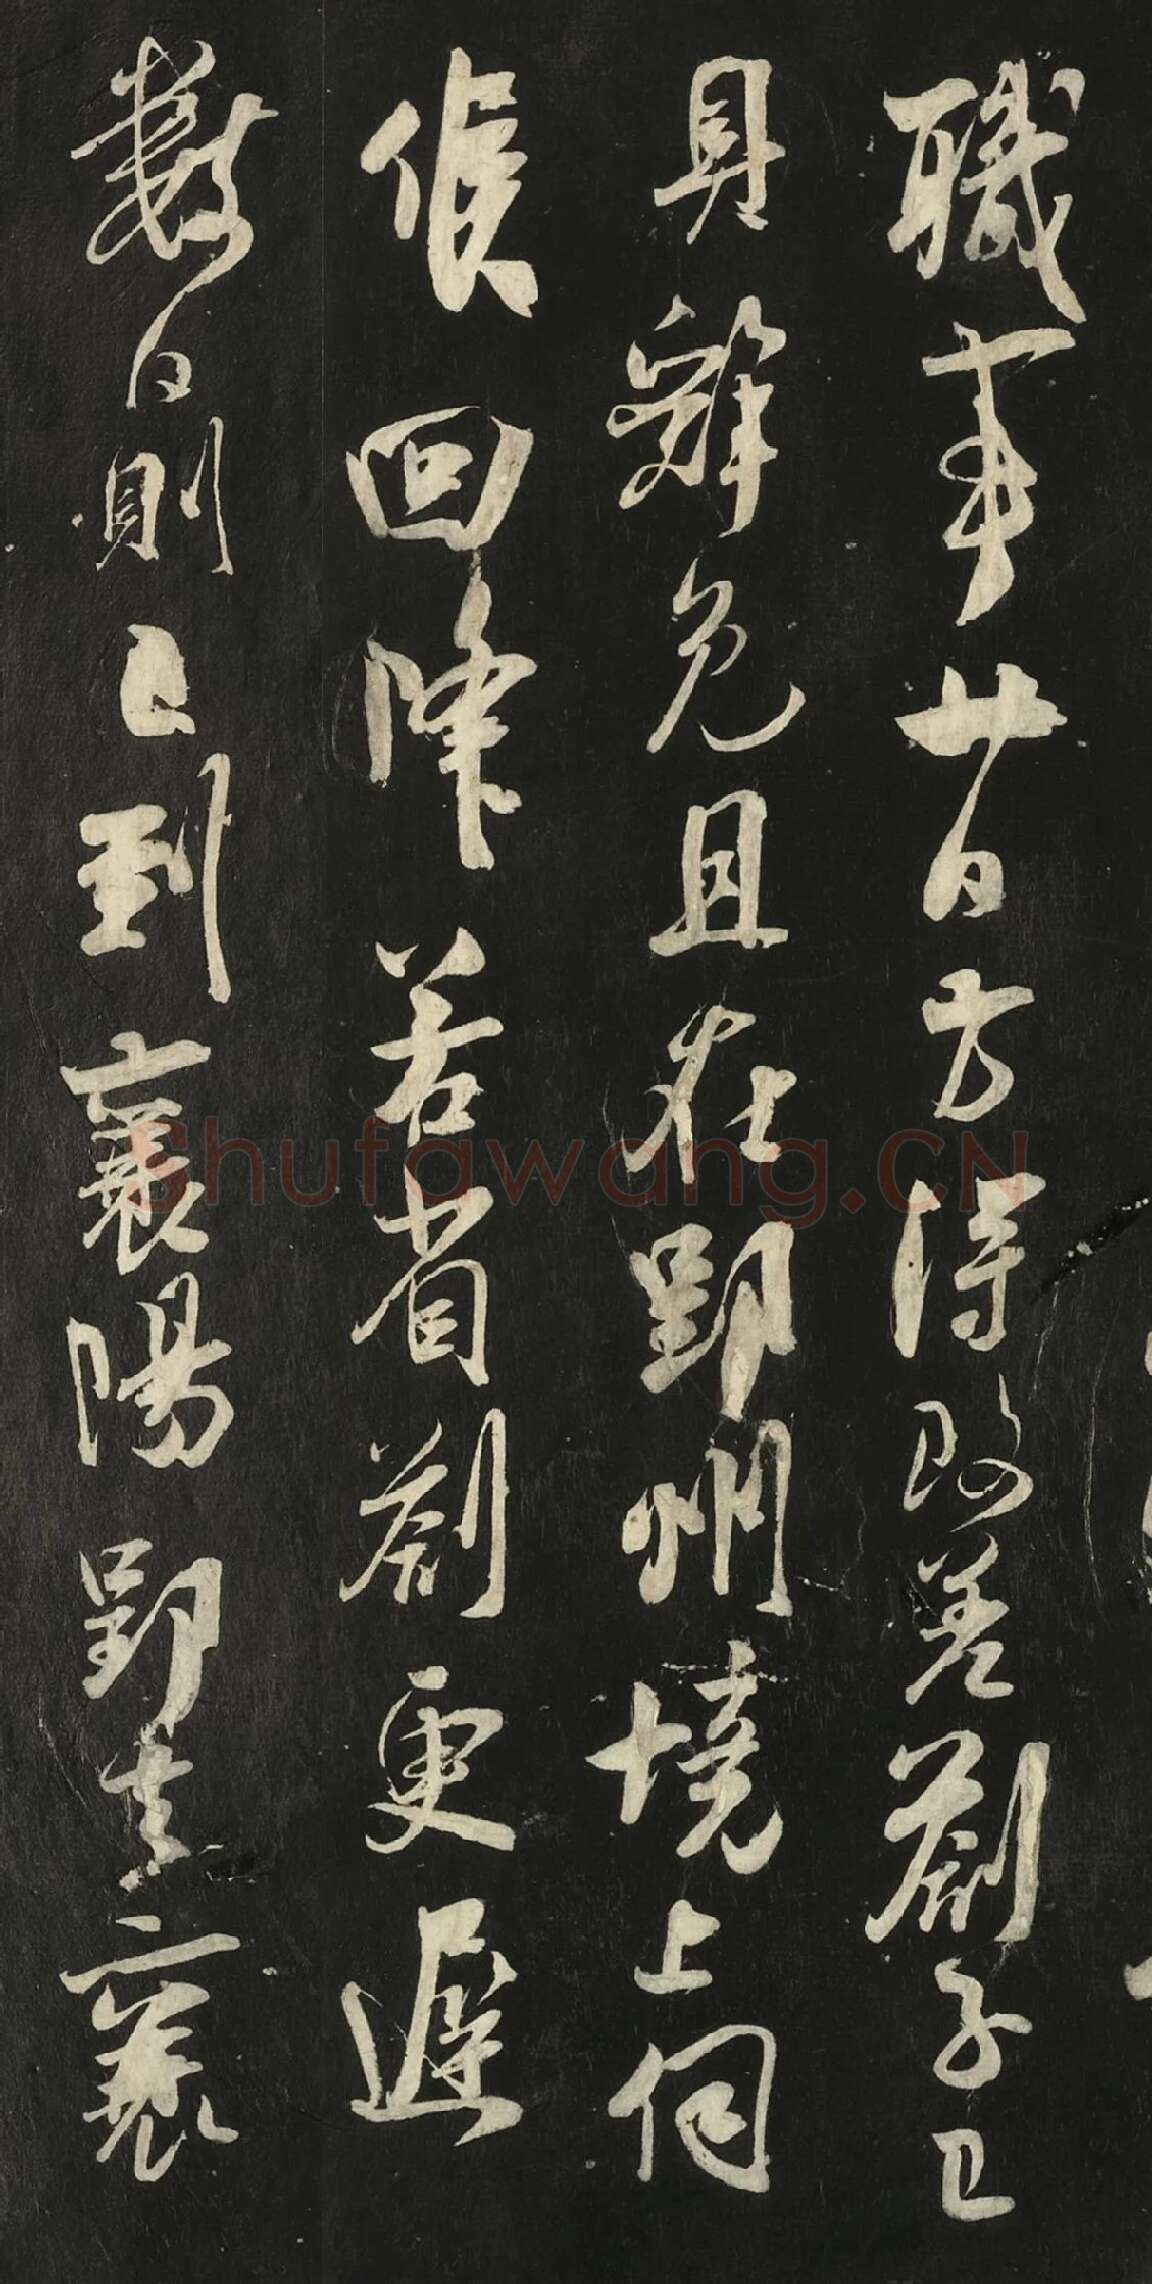 職事廿一日方得改差劄子已
具辭免且在郢州境上伺
候回降若省劄更遲
數日則已到襄陽郢去襄
Shufawang.CN